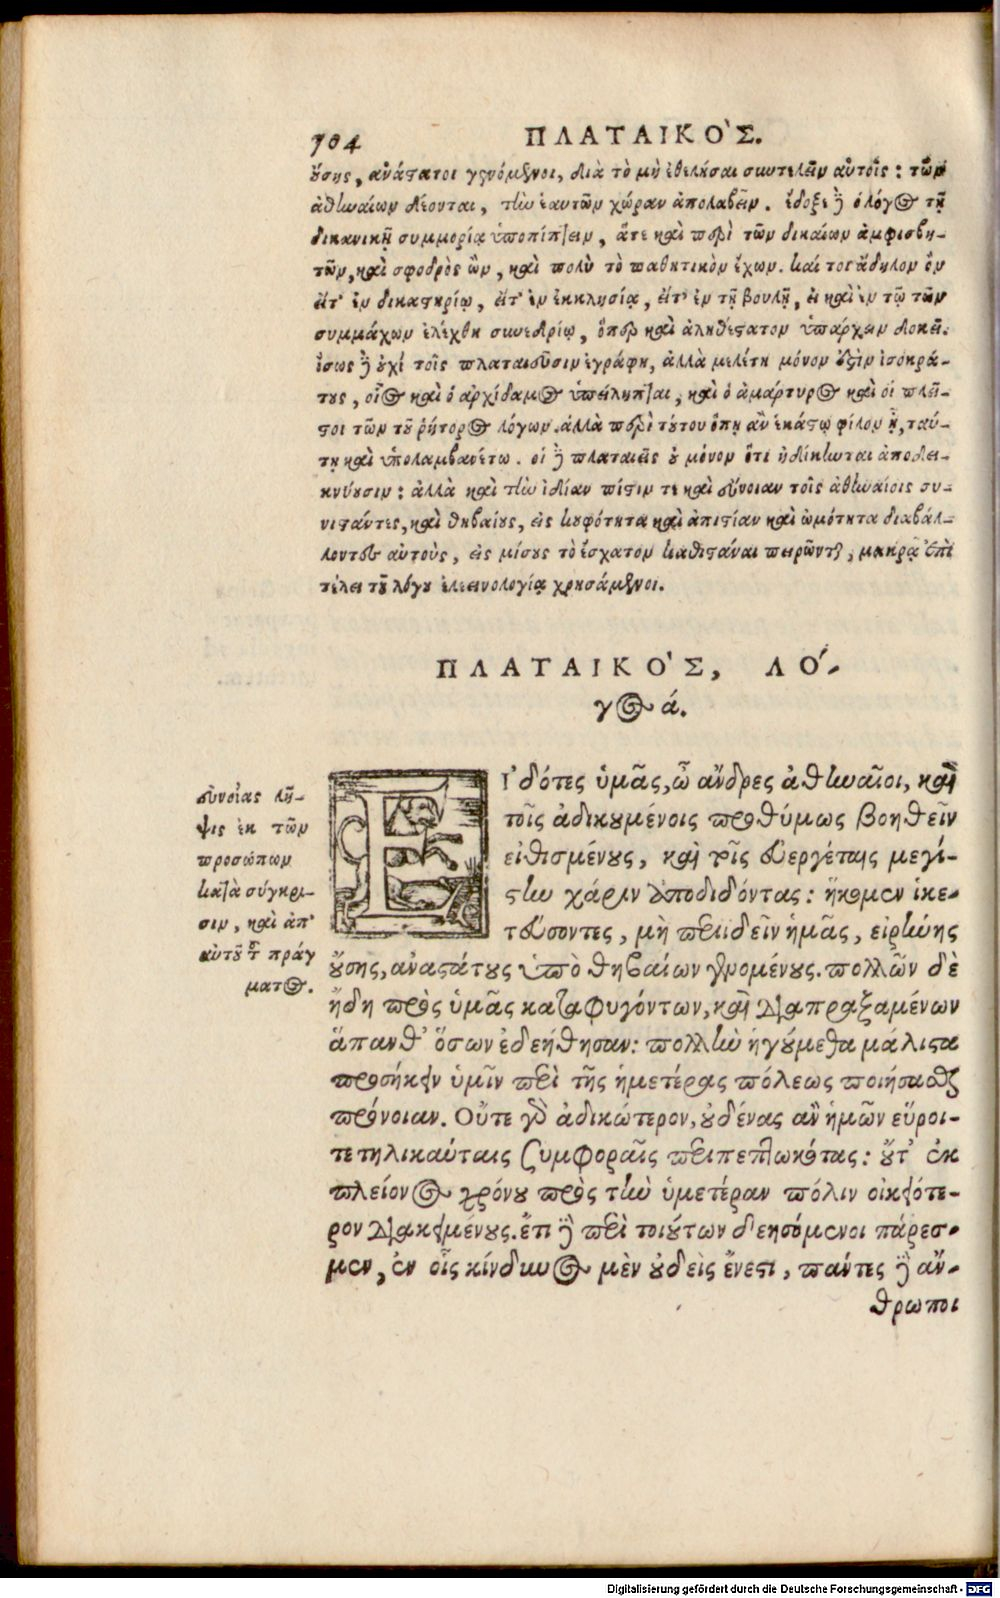 704 ΠΛΑΤΑΙΚΟ'Σ.
ούσης, ἀνάστατοι γενόμενοι, διὰ τὸ μὴ ἐθελῆσαι συντελεῖν αὐτοῖς: τῶν
ἀθηναίων δέονται, τὴν ἑαυτῶν χώραν ἀπολαβεῖν. ἔδοξε δὲ ὁ λόγος τῇ
δικανικῇ συμμορίᾳ ὑποπίπτειν, ἅτε καὶ περὶ τῶν δικαίων ἀμφισβη-
τῶν, καὶ σφοδρὸς ὢν, καὶ πολὺ τὸ παθητικὸν ἔχων. καί τοι ἄδηλον ὂν
εἴτ' ἐν δικαστηρίῳ, εἴτ' ἐν ἐκκλησίᾳ, εἴτ' ἐν τῇ βουλῇ, εἰ καὶ ἐν τῷ τῶν
συμμάχων ἐλέχθη συνεδρίῳ, ὅπερ καὶ ἀληθέστατον ὑπάρχειν δοκεῖ.
ἴσως δὲ οὐχὶ τοῖς πλαταιεῦσιν ἐγράφη, ἀλλὰ μελέτη μόνον ἐστὶν ἰσοκρά-
τους, οἷος καὶ ὁ ἀρχίδαμος ὑπείληπται, καὶ ὁ ἀμάρτυρος καὶ οἱ πλεῖ-
στοι τῶν τοῦ ῥήτορος λόγων. ἀλλὰ περὶ τούτου ὅπῃ ἂν ἑκάστῳ φίλον ᾖ, ταύ-
τῃ καὶ ὑπολαμβανέτω. οἱ δὲ πλαταιεῖς οὐ μόνον ὅτι ἠδίκηνται ἀποδει-
κνύουσιν: ἀλλὰ καὶ τὴν ἰδίαν πίστιν τε καὶ εὔνοιαν τοῖς ἀθηναίοις συ-
νιστάντες, καὶ θηβαίους, εἰς κουφότητα καὶ ἀπιστίαν καὶ ὠμότητα διαβάλ-
λοντες αὐτοὺς, εἰς μίσους τὸ ἔσχατον καθιστάναι πειρῶνται, μακρᾷ ἐπὶ
τέλει τοῦ λόγου ἐλεεινολογίᾳ χρησάμενοι.
ΠΛΑΤΑΙΚΟ'Σ, ΛΟ'-
γος ά.
εὐνοίας λῆ-
ψις ἐκ τῶν
προσώπων
κατὰ σύγκρι-
σιν, καὶ ἀπ'
αὐτοῦ τοῦ πράγ
ματος.
ΕΙ'δότες ὑμᾶς, ὦ ἄνδρες ἀθηναῖοι, καὶ
τοῖς ἀδικουμένοις προθύμως βοηθεῖν
εἰθισμένους, καὶ τοῖς εὐεργέταις μεγί-
στην χάριν ἀποδιδόντας: ἥκομεν ἱκε-
τεύσοντες, μὴ περιιδεῖν ἡμᾶς, εἰρήνης
οὔσης, ἀναστάτους ὑπὸ θηβαίων γενομένους. πολλῶν δὲ
ἤδη πρὸς ὑμᾶς καταφυγόντων, καὶ διαπραξαμένων
ἅπανθ' ὅσων ἐδεήθησαν: πολλὴν ἡγούμεθα μάλιστα
προσήκειν ὑμῖν περὶ τῆς ἡμετέρας πόλεως ποιήσασθαι
πρόνοιαν. Οὔτε γὰρ ἀδικώτερον, οὐδένας ἂν ἡμῶν εὕροι-
τε τηλικαύταις συμφοραῖς περιπεπτωκότας: οὔτ' ἐκ
πλείονος χρόνου πρὸς τὴν ὑμετέραν πόλιν οἰκειότε-
ρον διακειμένους. ἔτι δὲ περὶ τοιούτων δεησόμενοι πάρεσ-
μεν, ἐν οἷς κίνδυνος μὲν οὐδεὶς ἔνεστι, πάντες δὲ ἄν-
θρωποι
Digitalisierung gefördert durch die Deutsche Forschungsgemeinschaft - DFG